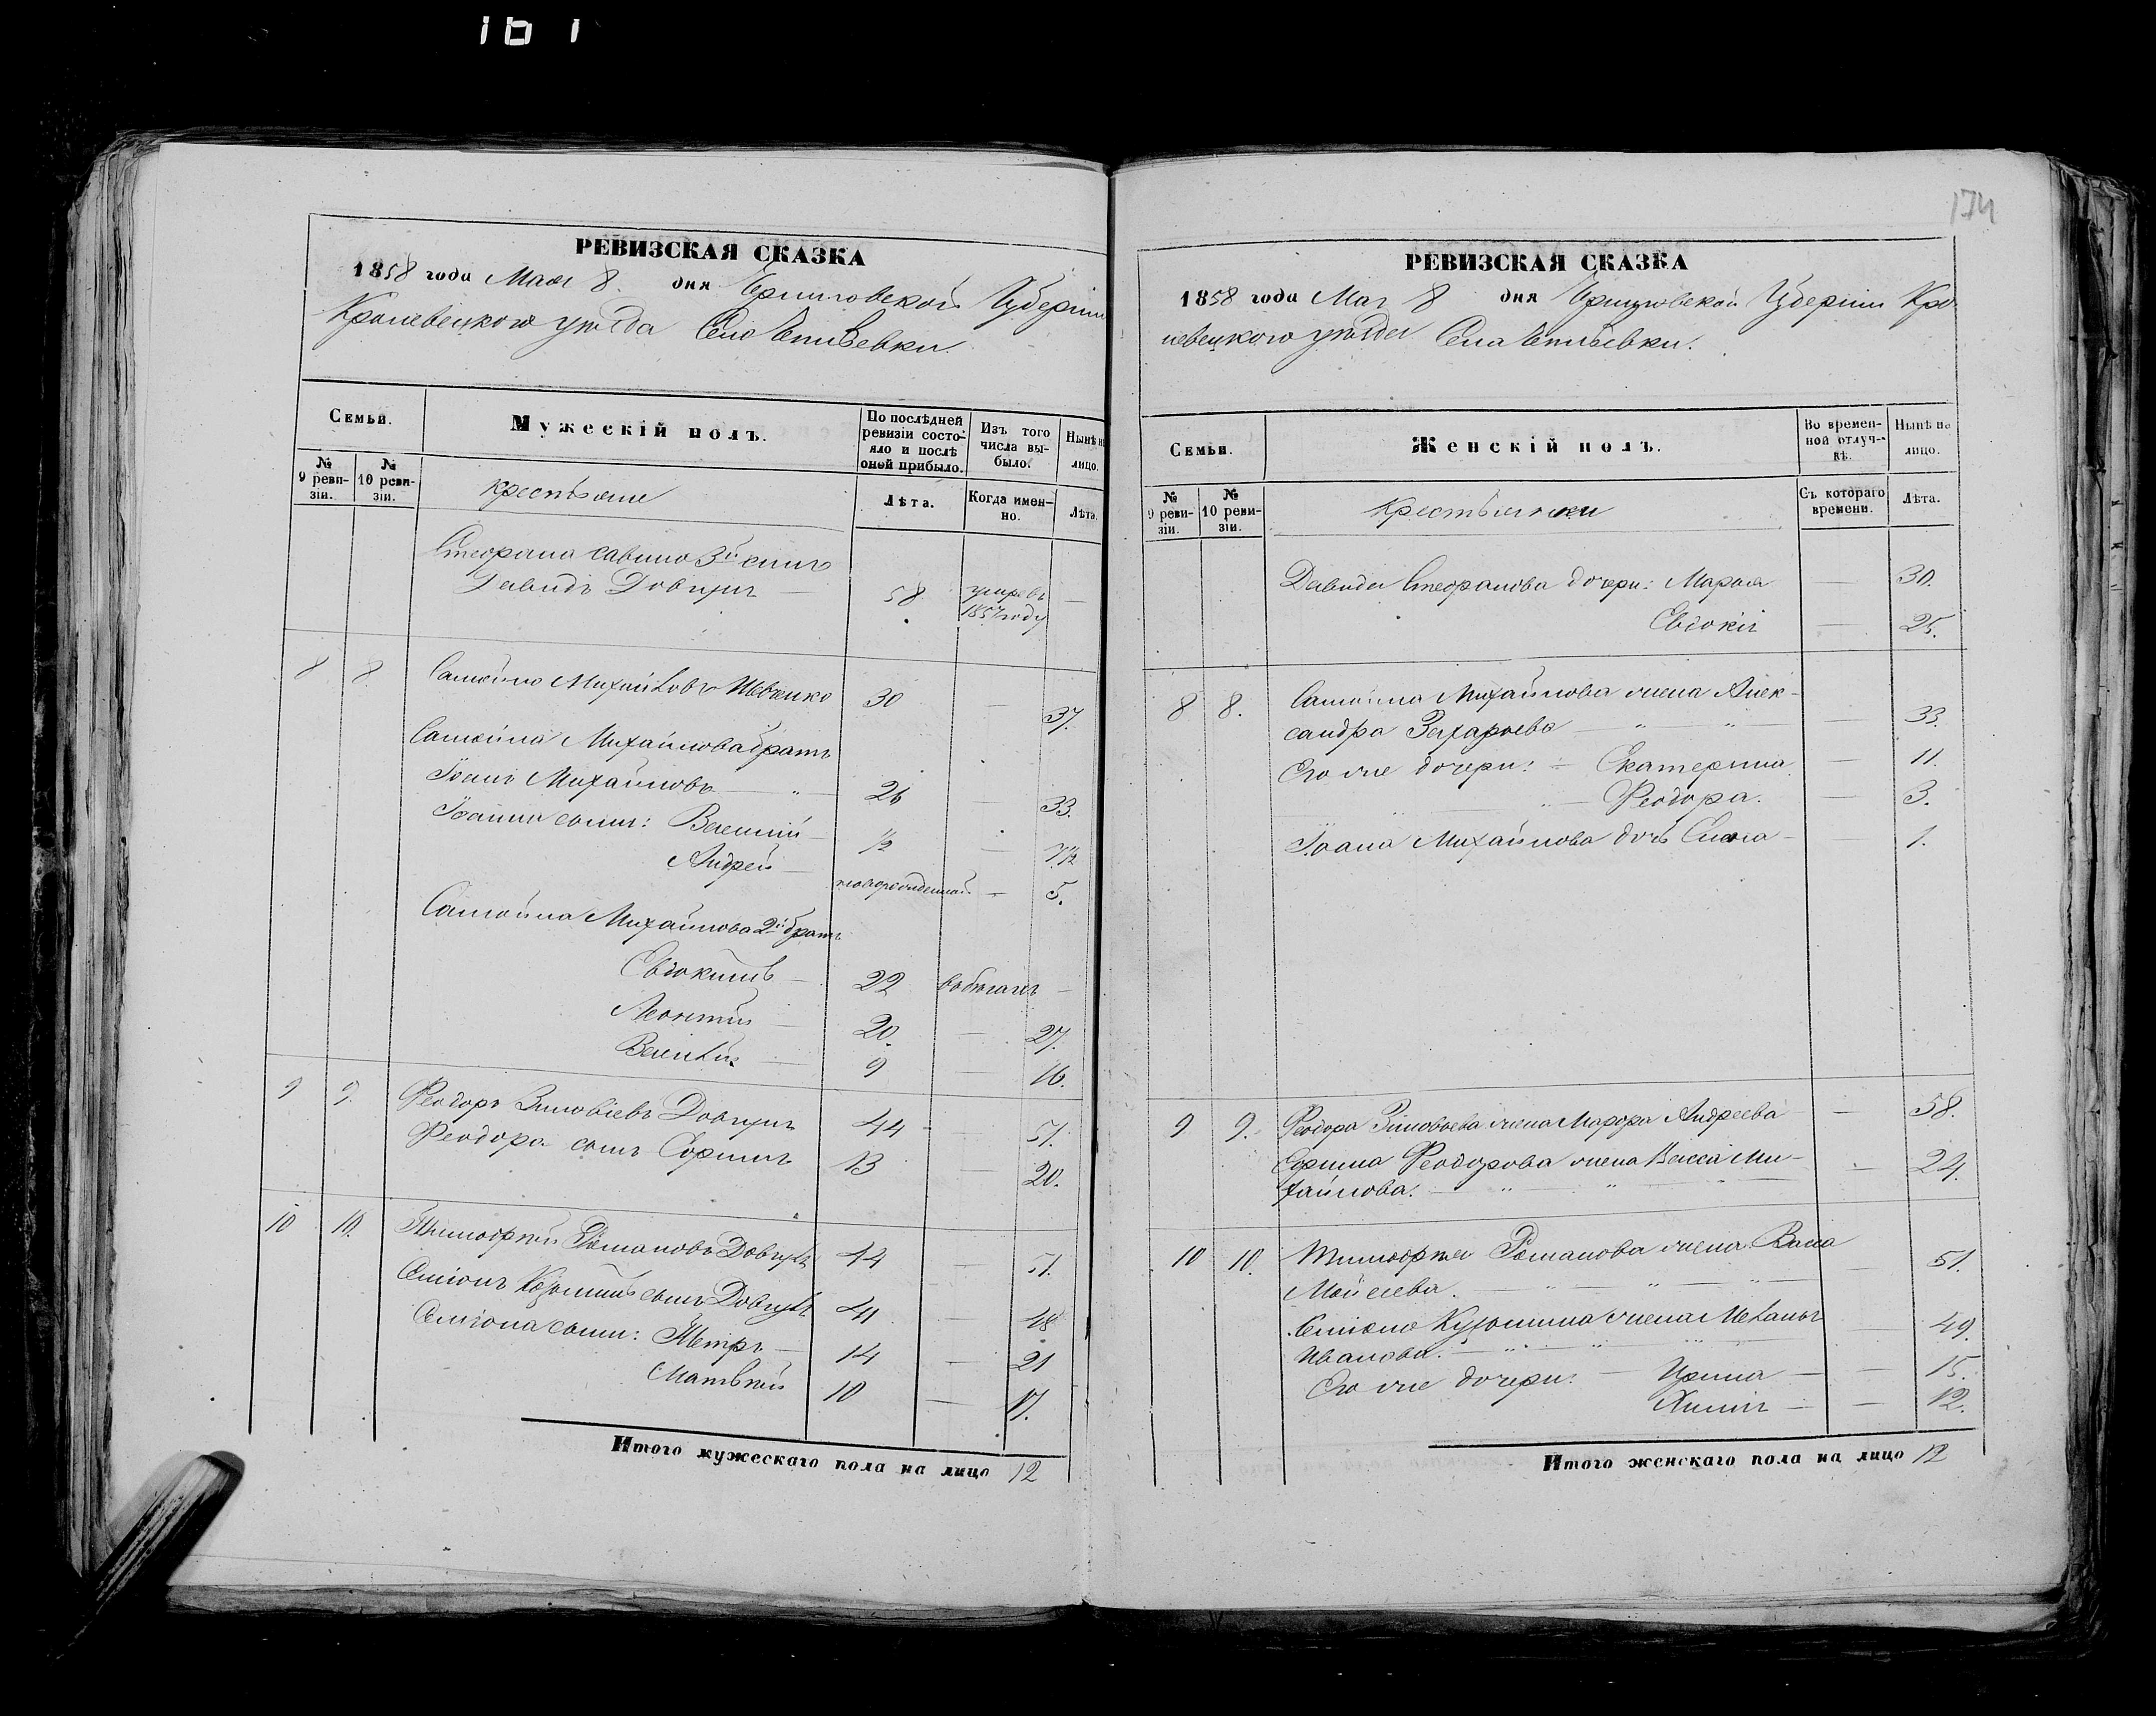 161
РЕВИЗСКАЯ СКАЗКА
1858 года Мая 8. дня Черниговской Губерніи
Кролевецкого уѣзда Села
Семьи.
Мужескій полъ.
По послѣдней ревизіи состояло и послѣ оной прибыло.
Изъ того числа выбыло.
Нынѣ на лицо.
№ 9 ревизіи.
№ 10 ревизіи.
крестьяне
Лѣта.
Когда именно.
Лѣта.
Стефана Савина 3й сынъ
Давидъ Довгуль — 58 умре въ 1857 году —
8 8. Самойло Михайловъ Шевченко 30 — 37.
Самойла Михайлова братъ
Іоанъ Михайловъ — " 26 33.
Іоанна сыны: Василій — ½ — 7½
Андрей — новорожденный — 5.
Самойла Михайлова 2й братъ
Евдокимъ — 22 въ бѣгахъ —
Леонтій — 20. — 27.
Василій — 9 — 16.
9 9. Феодоръ Зиновіевъ 44 — 51.
Феодора сынъ Ефимъ 13 20.
10 10. Тимофей Романовъ 44 — 51.
Семіонъ Козминъ сынъ 41 — 48
Семіона сыны: Петръ — 14 — 21
Матвѣй 10 — 17.
Итого мужескаго пола на лицо 12
174
РЕВИЗСКАЯ СКАЗКА
1858 года Мая 8 дня Черниговской Губерніи Кро
левецкого уѣзда Села
Семьи.
Женскій полъ.
Во временной отлучкѣ.
Нынѣ на лицо.
№ 9 ревизіи.
№ 10 ревизіи.
Крестьянки
Съ котораго времени.
Лѣта.
Давида Стефанова дочери: Марья — 30.
Евдокія — 25.
8 8. Самойла Михайлова жена Алек-
сандра Захарьева — " — " — 33.
Его же дочери: — Екатерина — 11.
" — Феодора. — 3.
Іоана Михайлова дочь — 1.
9 9. Феодора Зиновьева жена Марфа Андреева — 58.
Ефима Феодорова жена Васса Ми-
хайлова. — " — " — 24.
10 10. Тимофея Романова жена
Мойсеева. — " — " — " — 51.
Семіона Кузьмина жена Меланья
Иванова. — " — " — " — 49.
Его же дочери: — Ирина — 15.
— 12.
Итого женскаго пола на лицо 12